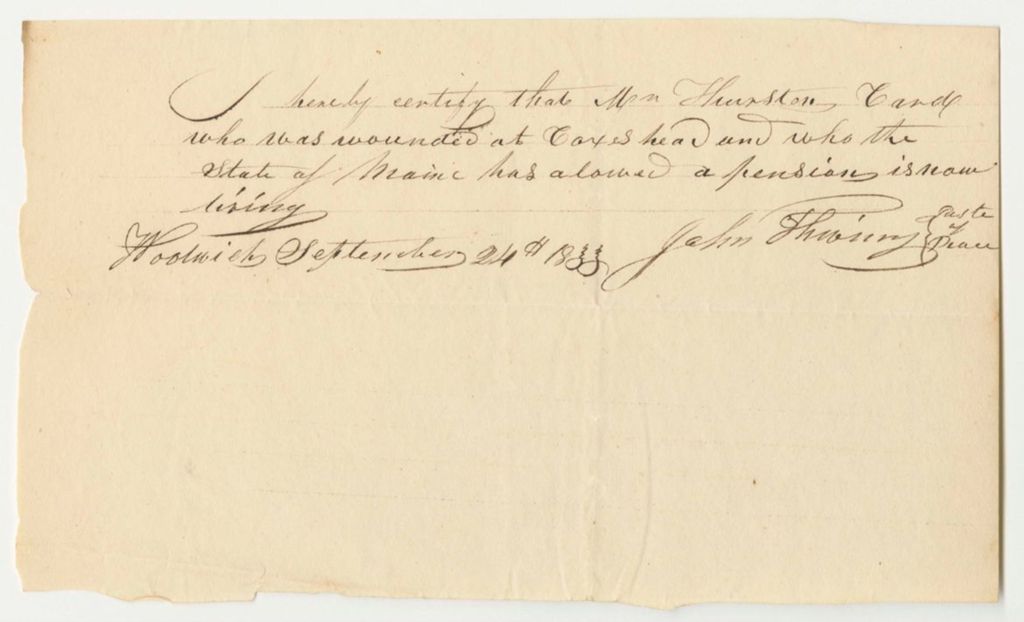 I hereby certify that Mr Thurston Card
who was wounded at Coxes head and who the
State of Maine has alowed a pension is now
living
Woolwich September 24th 1833 John Thwing Juste of Peace